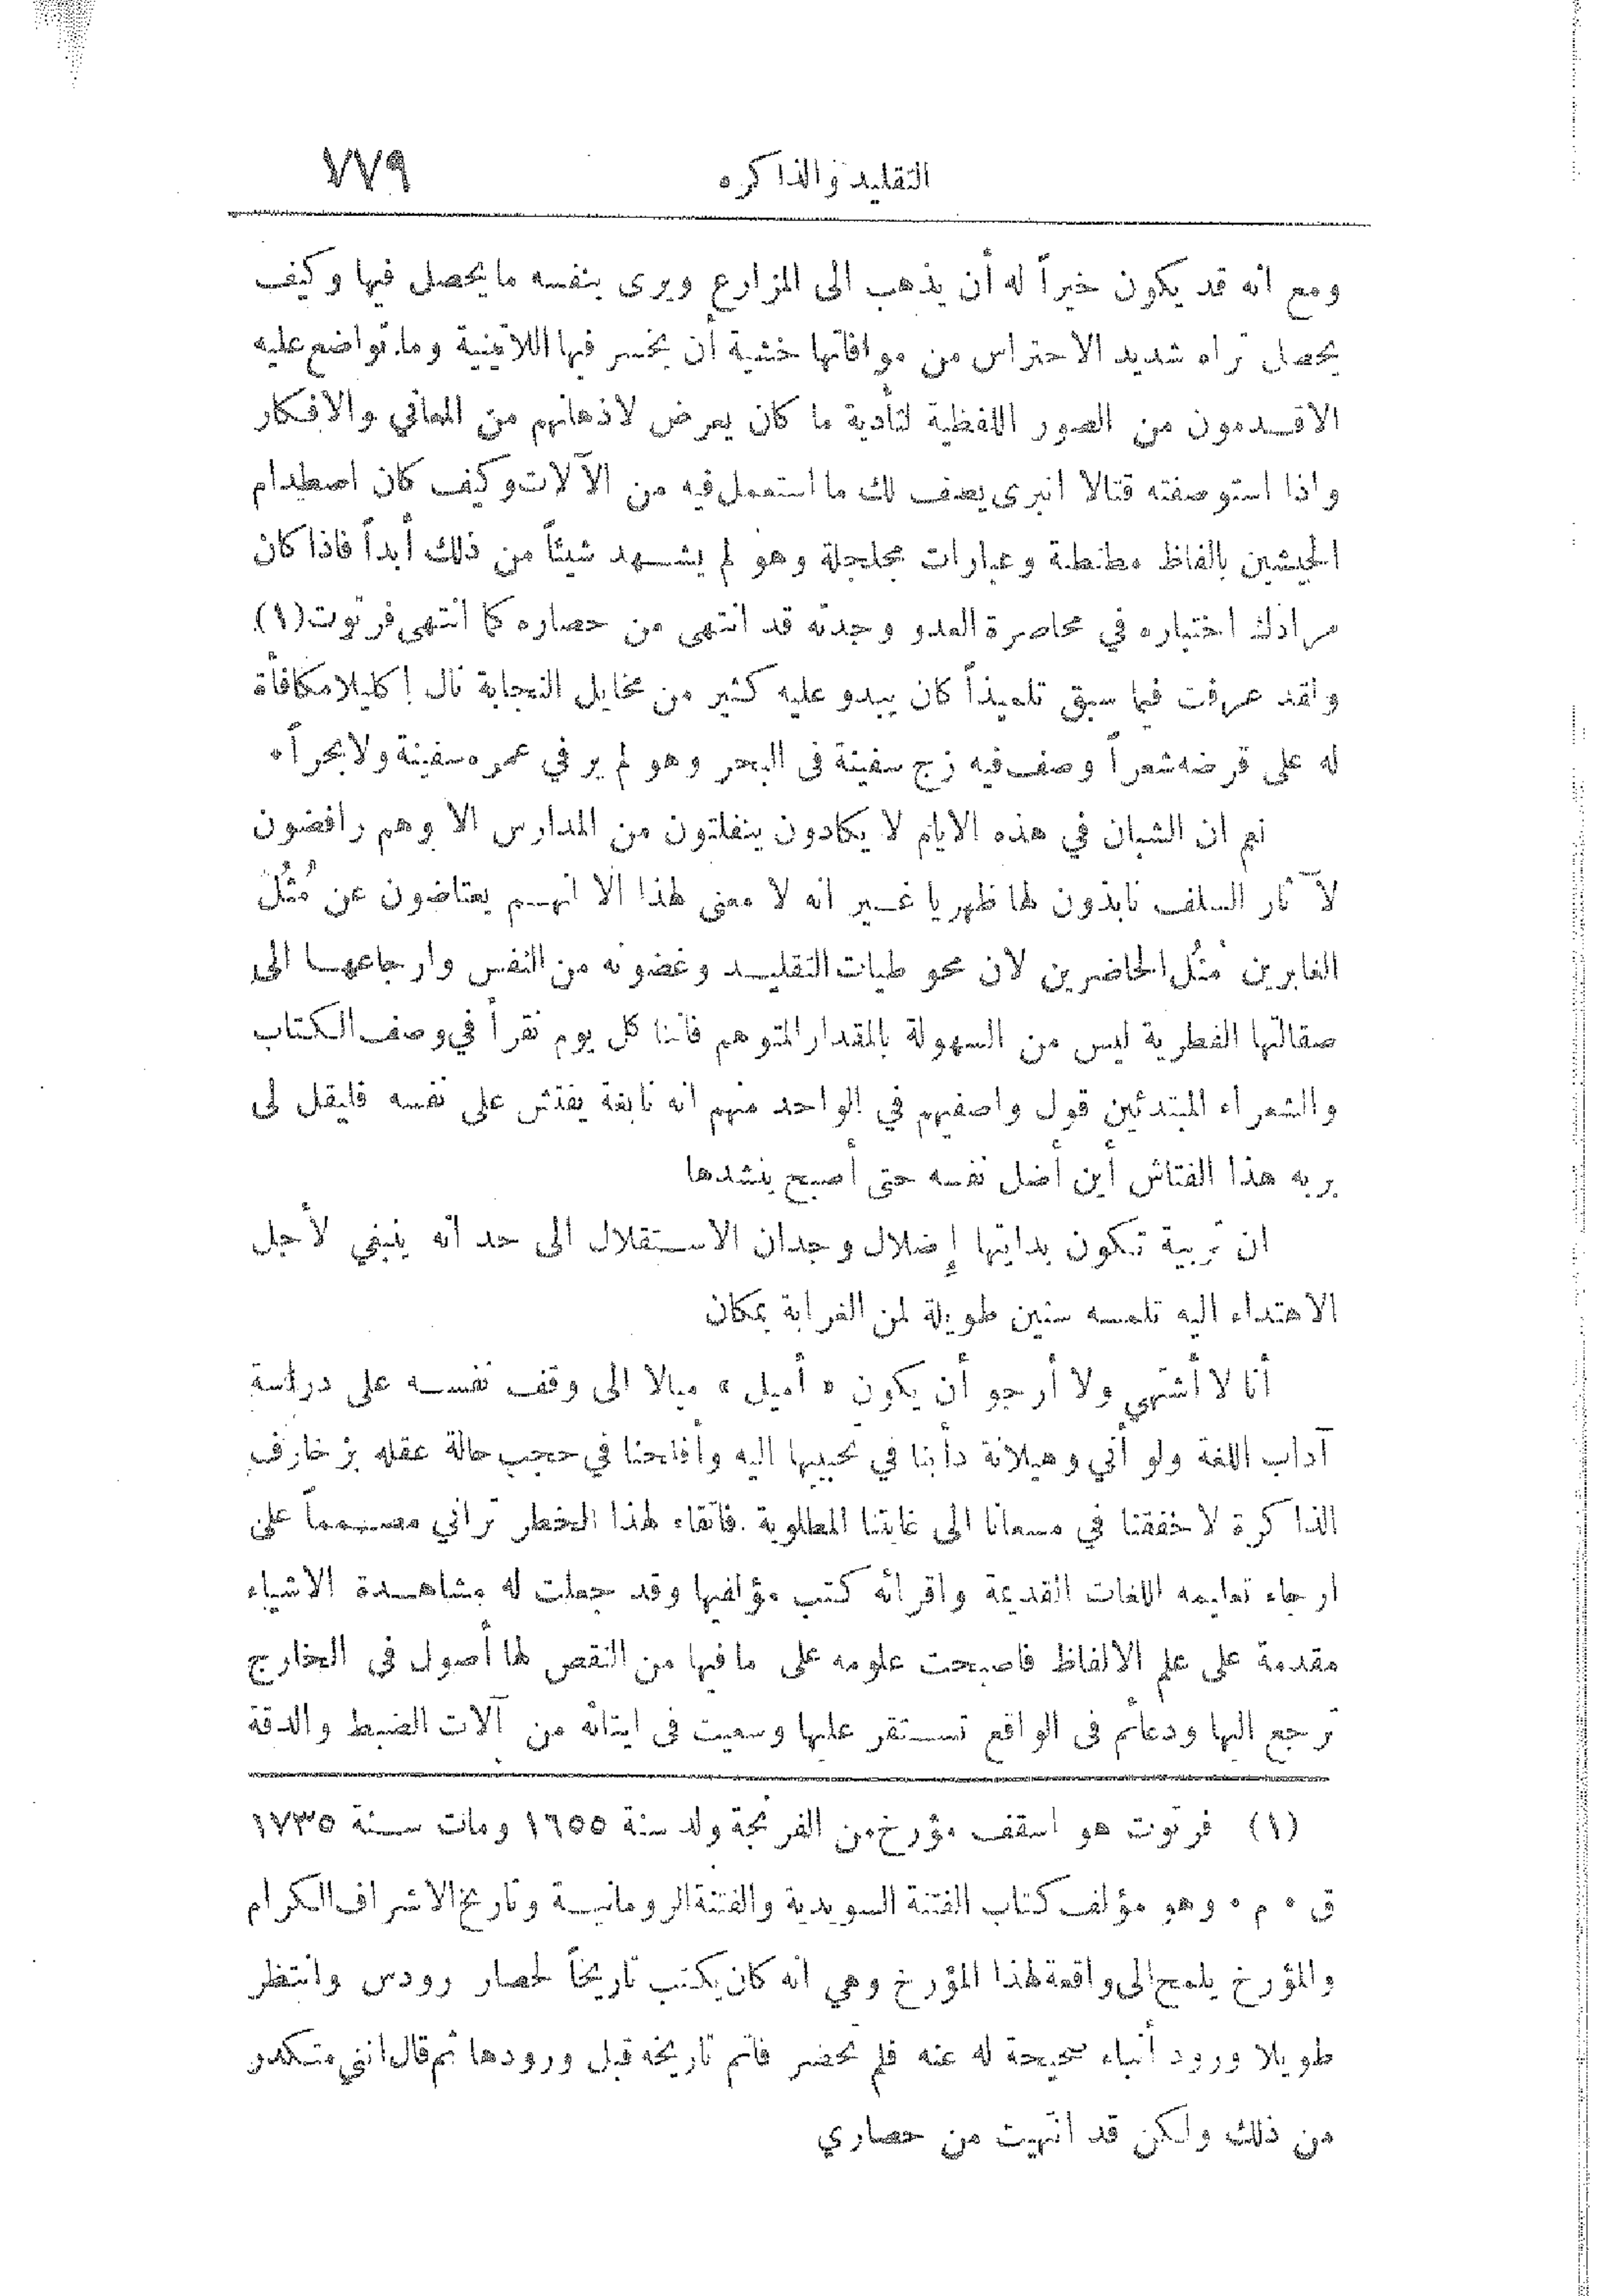 التقليد والذاكره ٧٧٩
ومع انه قد يكون خيراً له أن يذهب الى المزارع ويرى بنفسه ما يحصل فيها وكيف
يحصل تراه شديد الاحتراس من موافاتها خشية أن يخسر فيها اللاتينية وما تواضع عليه
الاقدمون من الصور اللفظية لتأدية ما كان يعرض لاذهانهم من المعاني والافكار
واذا استوصفته قتالا انبرى يصف لك ما استعمل فيه من الآلات وكيف كان اصطدام
الجيشين بالفاظ مطنطنة وعبارات مجلجلة وهو لم يشهد شيئاً من ذلك أبداً فاذا كان
مرادك اختباره في محاصرة العدو وجدته قد انتهى من حصاره كما انتهى فرتوت (١)
ولقد عرفت فيما سبق تلميذاً كان يبدو عليه كثير من مخايل النجابة نال إكليلا مكافأة
له على قرضه شعراً وصف فيه زج سفينة في البحر وهو لم ير في عمره سفينة ولا بحراً ٠
نعم ان الشبان في هذه الايام لا يكادون ينفلتون من المدارس الا وهم رافضون
لآثار السلف نابذون لها ظهريا غير انه لا معنى لهذا الا انهم يعتاضون عن مُثُل
الغابرين مُثُل الحاضرين لان محو طيات التقليد وغضونه من النفس وارجاعها الى
صقالتها الفطرية ليس من السهولة بالمقدار المتوهم فاننا كل يوم نقرأ في وصف الكتاب
والشعراء المبتدئين قول واصفيهم في الواحد منهم انه نابغة يفتش على نفسه فليقل لى
بربه هذا الفتاش أين أضل نفسه حتى أصبح ينشدها
ان تربية تكون بدايتها إضلال وجدان الاستقلال الى حد انه ينبغي لأجل
الاهتداء اليه تلمسه سنين طويلة لمن الغرابة بمكان
أنا لا أشتهي ولا أرجو أن يكون « أميل » ميالا الى وقف نفسه على دراسة
آداب اللغة ولو أني وهيلانة دأبنا في تحبيبها اليه وأفلحنا في حجب حالة عقله بزخارف
الذاكرة لاخفقنا في مسعانا الى غايتنا المطلوبة . فاتقاء لهذا الخطر تراني مصمماً على
ارجاء تعليمه اللغات القديمة واقرائه كتب مؤلفيها وقد جعلت له مشاهدة الاشياء
مقدمة على علم الالفاظ فاصبحت علومه على ما فيها من النقص لها أصول في الخارج
ترجع اليها ودعائم في الواقع تستقر عليها وسعيت في ايتائه من آلات الضبط والدقة
(١) فرتوت هو اسقف مؤرخ من الفرنجة ولد سنة ١٦٥٥ ومات سنة ١٧٣٥
ق ٠ م ٠ وهو مؤلف كتاب الفتنة السويدية والفتنة الرومانية وتاريخ الاشراف الكرام
والمؤرخ يلمح الى واقعة لهذا المؤرخ وهي انه كان يكتب تاريخاً لحصار رودس وانتظر
طويلا ورود أنباء صحيحة له عنه فلم تحضر فاتم تاريخه قبل ورودها ثم قال انني متكدر
من ذلك ولكن قد انتهيت من حصاري